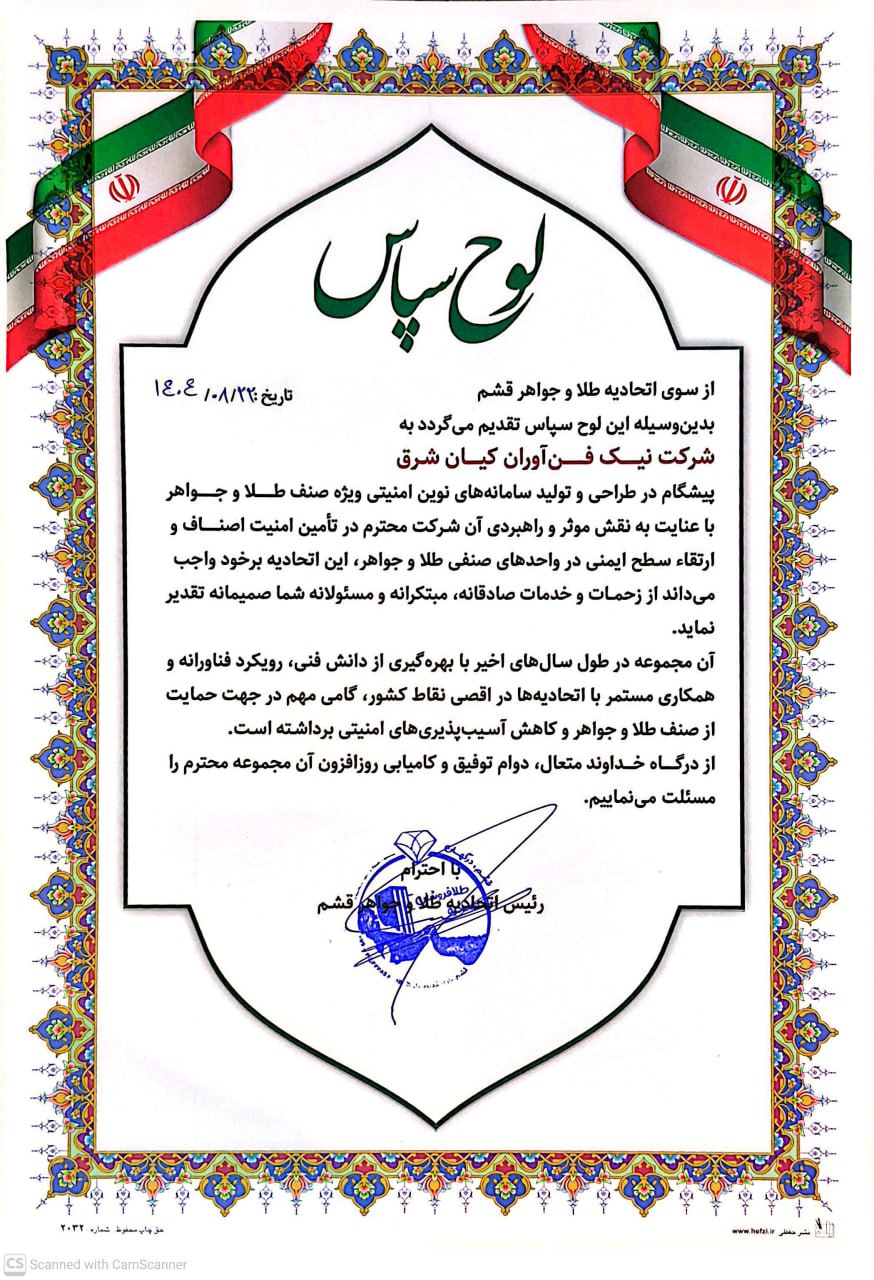 لوح سپاس
از سوی اتحادیه طلا و جواهر قشم
تاریخ: ۱۴۰۴/۰۸/۲۲
بدین‌وسیله این لوح سپاس تقدیم می‌گردد به
شرکت نیک فن‌آوران کیان شرق
پیشگام در طراحی و تولید سامانه‌های نوین امنیتی ویژه صنف طلا و جواهر
با عنایت به نقش موثر و راهبردی آن شرکت محترم در تأمین امنیت اصناف و
ارتقاء سطح ایمنی در واحدهای صنفی طلا و جواهر، این اتحادیه برخود واجب
می‌داند از زحمات و خدمات صادقانه، مبتکرانه و مسئولانه شما صمیمانه تقدیر
نماید.
آن مجموعه در طول سال‌های اخیر با بهره‌گیری از دانش فنی، رویکرد فناورانه و
همکاری مستمر با اتحادیه‌ها در اقصی نقاط کشور، گامی مهم در جهت حمایت
از صنف طلا و جواهر و کاهش آسیب‌پذیری‌های امنیتی برداشته است.
از درگاه خداوند متعال، دوام توفیق و کامیابی روزافزون آن مجموعه محترم را
مسئلت می‌نماییم.
با احترام
رئیس اتحادیه طلا و جواهر قشم
نشر حفظی www.hefzi.ir
حق چاپ محفوظ شماره ۲۰۳۲
CS Scanned with CamScanner